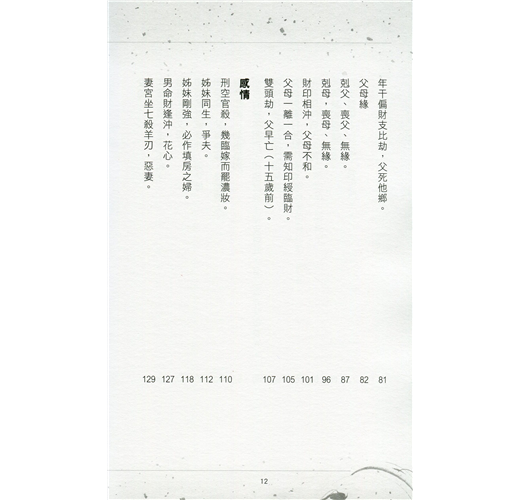 年干偏財支比劫，父死他鄉。 81
父母緣 82
剋父、喪父、無緣。 87
剋母，喪母、無緣。 96
財印相沖，父母不和。 101
父母一離一合，需知印綬臨財。 105
雙頭劫，父早亡（十五歲前）。 107
感情
刑空官殺，幾臨嫁而罷濃妝。 110
姊妹同生，爭夫。 112
姊妹剛強，必作填房之婦。 118
男命財逢沖，花心。 127
妻宮坐七殺羊刃，惡妻。 129
12